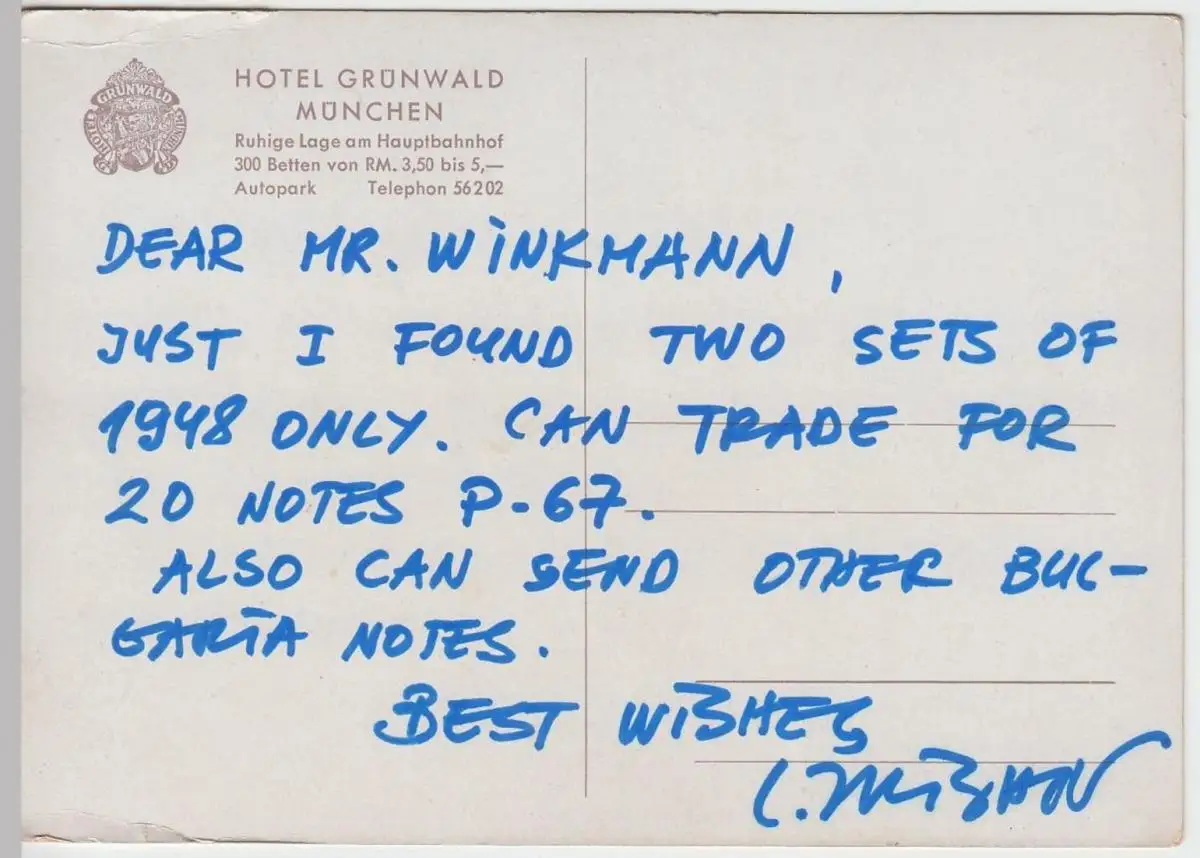 GRÜNWALD
HOTEL
HOTEL GRÜNWALD
MÜNCHEN
Ruhige Lage am Hauptbahnhof
300 Betten von RM. 3,50 bis 5,—
Autopark Telephon 56202
DEAR MR. WINKMANN,
JUST I FOUND TWO SETS OF
1948 ONLY. CAN TRADE FOR
20 NOTES P-67.
ALSO CAN SEND OTHER BUL-
GARIA NOTES.
BEST WISHES